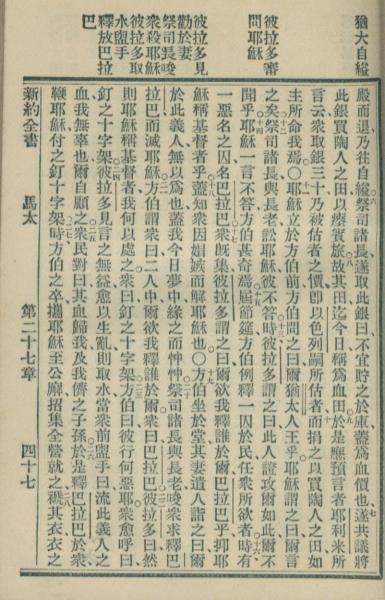 猶大自縊
彼拉多審
問耶穌
彼拉多見
勸於妻
祭司長唆
衆殺耶穌
彼拉多取
水盥手
釋放巴拉
巴
殿而退乃往自縊祭司諸長遂取此銀曰不宜貯之於庫蓋爲血價也遂共議將
此銀買陶人之田以瘞賓旅故其田迄今日稱爲血田於是應預言者耶利米所
言云衆取銀三十乃被估者之價卽以色列嗣所估者而捐之以買陶人之田如
主所命我焉〇耶穌立於方伯前方伯問之曰爾猶太人王乎耶穌謂之曰爾言
之矣祭司諸長與長老訟耶穌彼不答時彼拉多謂之曰此人證攻爾如此爾不
聞乎耶穌一言不答方伯甚奇焉屆節筵方伯例釋一囚於民任衆所欲者時有
一惡名之囚名巴拉巴衆旣集彼拉多謂之曰爾欲我釋誰於爾巴拉巴乎抑耶
穌稱基督者乎蓋知衆因媢嫉而解耶穌也〇方伯坐於堂其妻遣人詣之曰爾
於此義人無以爲也蓋我今日夢中緣之而忡忡祭司諸長與長老唆衆求釋巴
拉巴而滅耶穌方伯謂衆曰二人中爾欲我釋誰於爾衆曰巴拉巴彼拉多曰然
則耶穌稱基督者我何以處之衆曰釘之十字架方伯曰彼行何惡耶衆愈呼曰
釘之十字架彼拉多見言之無益愈以生亂則取水當衆前盥手曰流此義人之
血我無辜也爾自顧之衆民對曰其血歸我及我儕之子孫於是釋巴拉巴於衆
鞭耶穌付之釘十字架時方伯之卒攜耶穌至公廨招集全營就之褫其衣衣之
新約全書 馬太 第二十七章 四十七